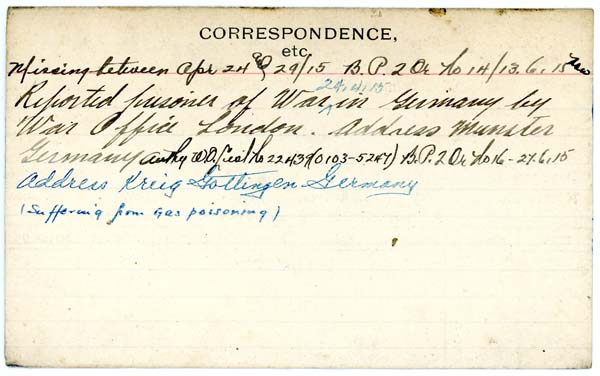 CORRESPONDENCE,
etc.
Missing between Apr 24 & 29/15 B.P. 2 Or No 14/13.6.15
24.4.15
Reported prisoner of War in Germany by
War Office London. Address Munster
Germany authy W.O. No 22437 (0103-5247) B.P. 2 Or No 16-27.6.15
Address Kreig Gottingen Germany
(Suffering from Gas poisoning)